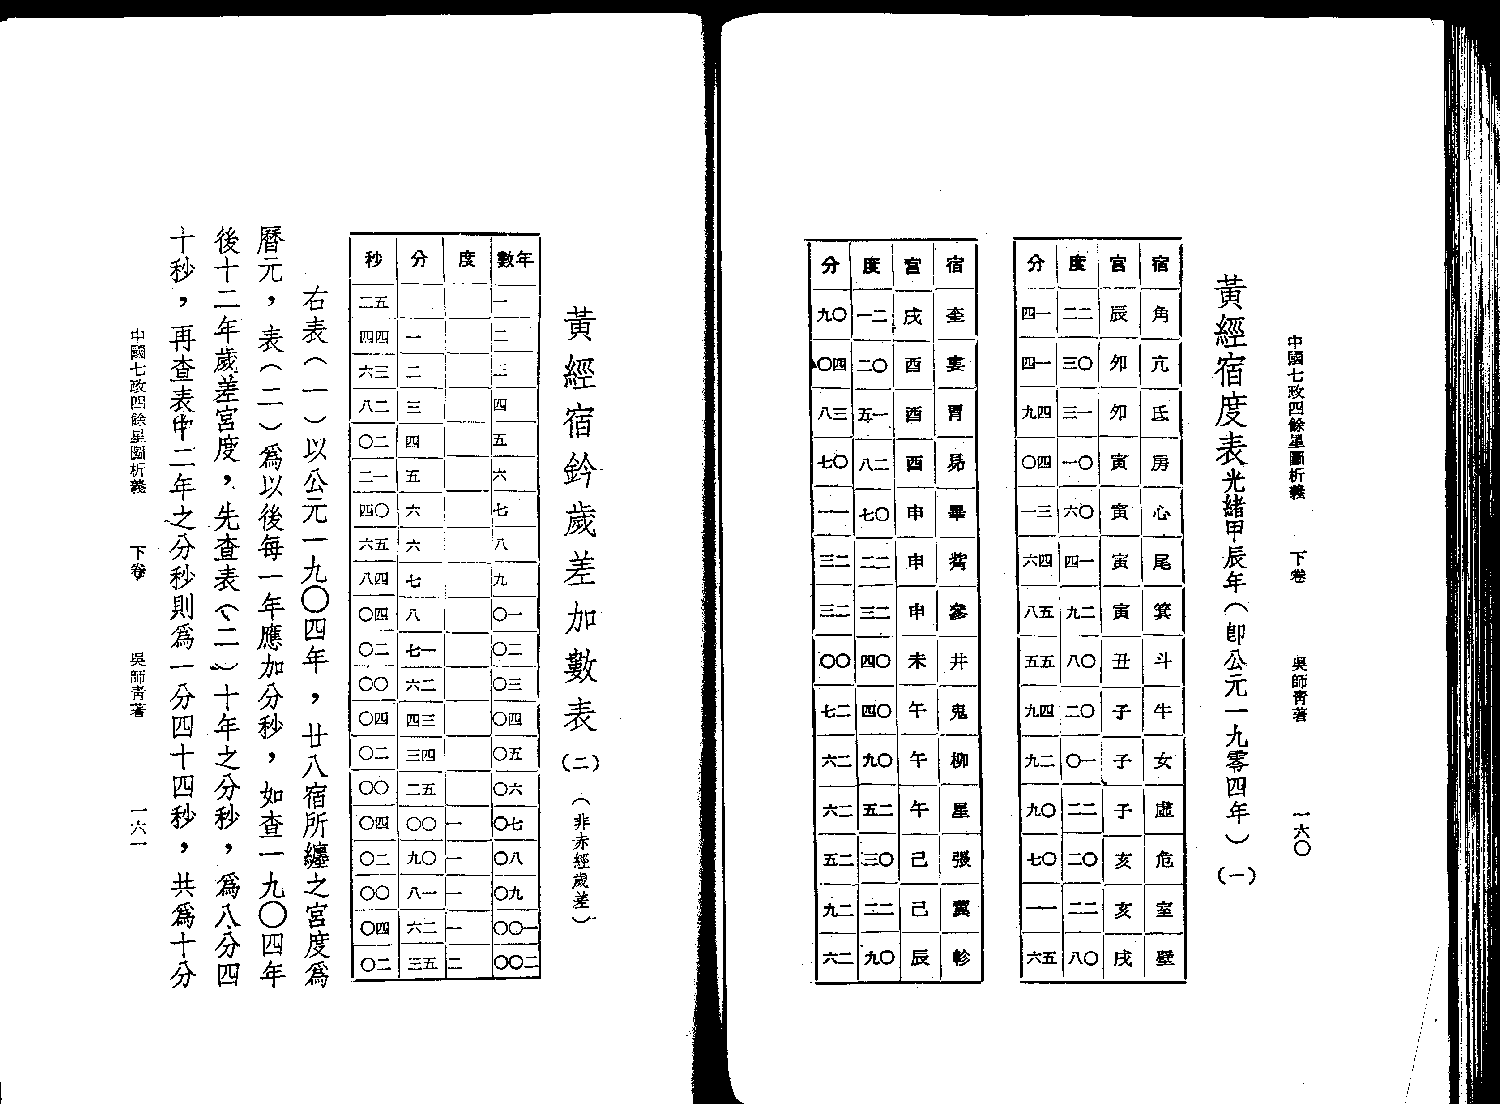 中國七政四餘星圖析義 下卷 吳師青著 一六〇
黃經宿度表光緒甲辰年(卽公元一九零四年)(一)
宿 宮 度 分
角 辰 二二 一四
亢 卯 〇三 一四
氐 卯 一三 四九
房 寅 〇一 四〇
心 寅 〇六 三一
尾 寅 一四 四六
箕 寅 二九 五八
斗 丑 〇八 五五
牛 子 〇二 四九
女 子 一〇 二九
虛 子 二二 〇九
危 亥 〇二 〇七
室 亥 二二 一一
壁 戌 〇八 五六
宿 宮 度 分
奎 戌 二一 〇九
婁 酉 〇二 四〇
胃 酉 一五 三八
昴 酉 二八 〇七
畢 申 〇七 一一
觜 申 二二 二三
參 申 二三 二三
井 未 〇四 〇〇
鬼 午 〇四 二七
柳 午 〇九 二六
星 午 二五 二六
張 己 〇三 二五
翼 己 二二 二九
軫 辰 〇九 二六
黃經宿鈐歲差加數表(二)(非赤經歲差)
年數 度 分 秒
一 五二
二 一 四四
三 二 三六
四 三 二八
五 四 二〇
六 五 一二
七 六 〇四
八 六 五六
九 七 四八
一〇 八 四〇
二〇 一七 二〇
三〇 二六 〇〇
四〇 三四 四〇
五〇 四三 二〇
六〇 五二 〇〇
七〇 一 〇〇 四〇
八〇 一 〇九 二〇
九〇 一 一八 〇〇
一〇〇 一 二六 四〇
二〇〇 二 五三 二〇
右表(一)以公元一九〇四年,廿八宿所纏之宮度爲
曆元,表(二)爲以後每一年應加分秒,如查一九〇四年
後十二年歲差宮度,先查表(二)十年之分秒,爲八分四
十秒,再查表中二年之分秒則爲一分四十四秒,共爲十分
中國七政四餘星圖析義 下卷 吳師青著 一六一